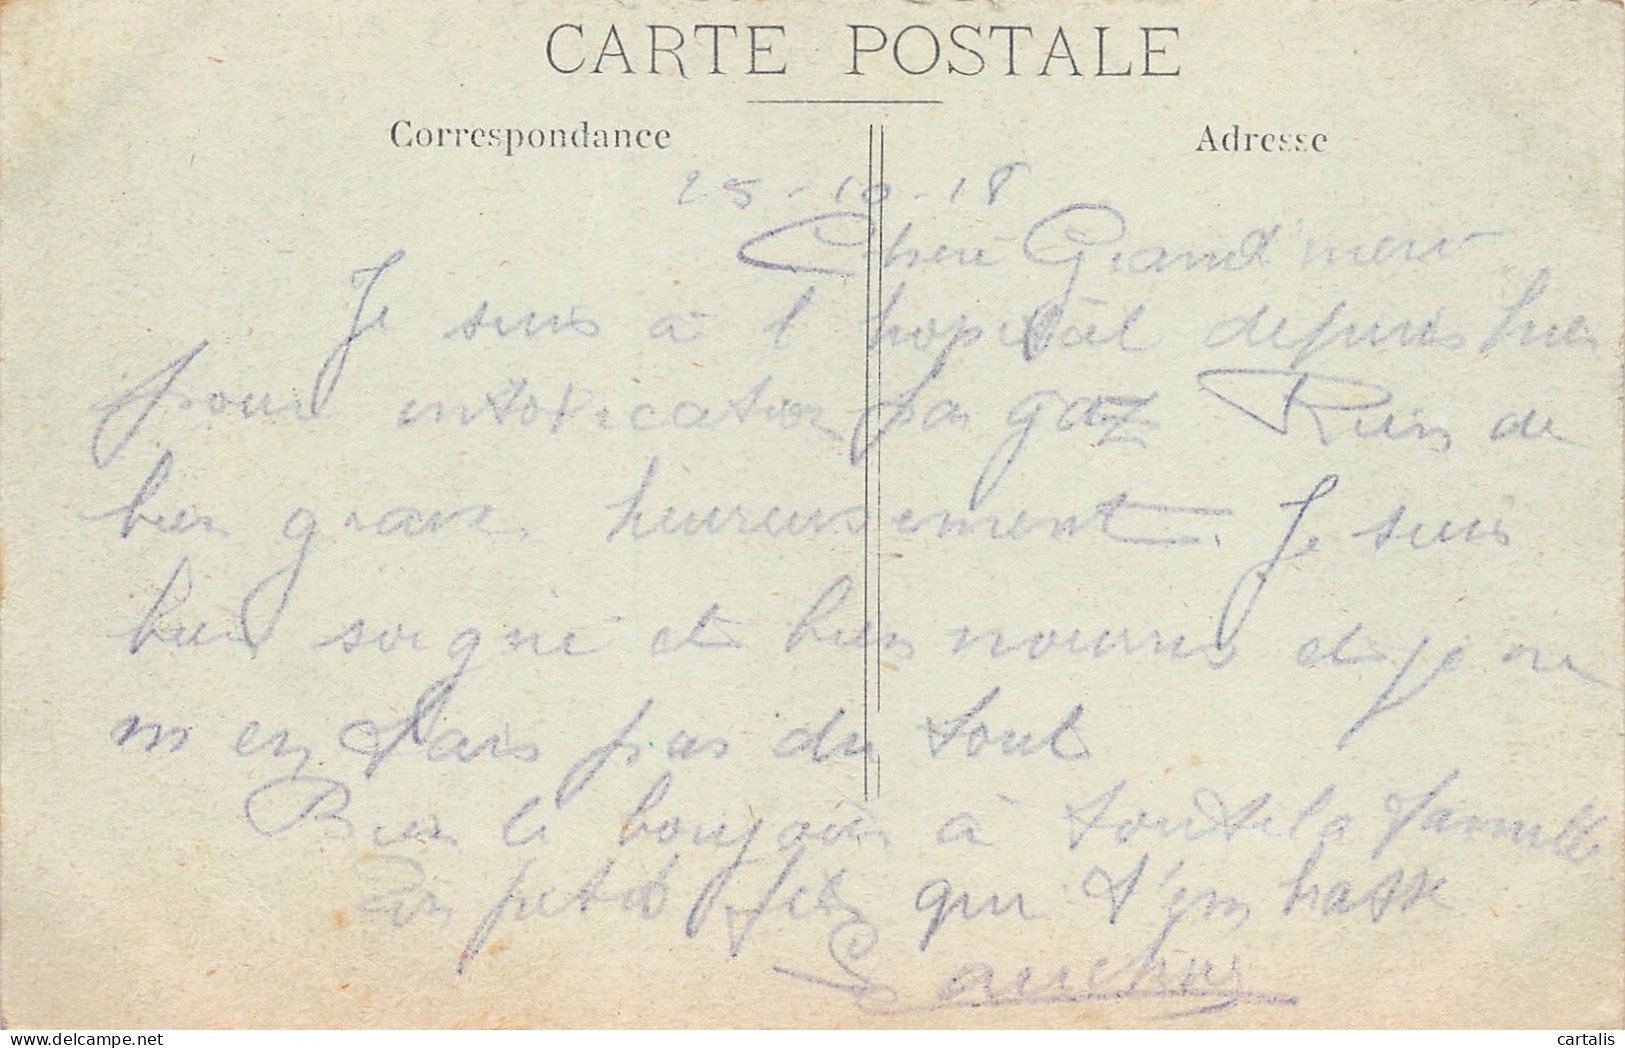 CARTE POSTALE
Correspondance
Adresse
25-10-18
Chère Grand'mère
Je suis à l'hopital depuis hier
pour intoxication par gaz Rien de
bien grave heureusement. Je suis
bien soigné et bien nourris et je ne
m'en fais pas du tout
Bien le bonjour à toute la famille
Ton petit fils qui t'embrasse
cartalis